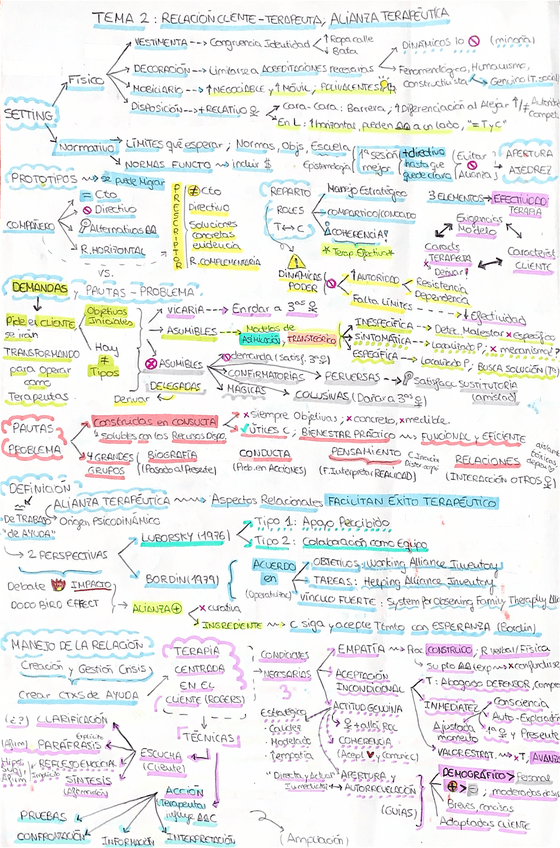 TEMA 2: RELACIÓN CLIENTE-TERAPEUTA, ALIANZA TERAPÉUTICA
SETTING
Físico
VESTIMENTA --> Congruencia Identidad
Ropa calle
Bata
DECORACIÓN --> Limitarse a ACREDITACIONES necesarias
DINÁMICOS lo (minoría)
Fenomenológico, Humanismo,
Constructivista
MOBILIARIO --> ↑ NEGOCIABLE, ↑ MÓVIL, POLIVALENTES
DISPOSICIÓN --> + RELATIVO
Cara-Cara: Barrera, ↑ Diferenciación al Alejar
En L: ↑ horizontal, pueden a un lado, "= T y C"
Normativo
LÍMITES qué esperar; Normas, Objs, Escuela
Epistemología
NORMAS FUNCTO → incluir $
1ª sesión
mejor
+ directivo
hasta que
quede clara
Evitar
Alianza
APERTURA
AJEDREZ
PROTOTIPOS → se puede Migrar
COMPAÑERO
= Cto
Directivo
Alternativas
R. HORIZONTAL
VS.
PRESCRIPTOR
≠ Cto
Directivo
Soluciones
concretas
evidencia
R. COMPLEMENTARIA
REPARTO
ROLES
T ↔ C
Manejo Estratégico
COMPARTIDO/COMUNICADO
¡COHERENCIA!
* Terap Efectiva *
DINÁMICAS
PODER
↑ AUTORIDAD
Resistencia
Dependencia
Falta LÍMITES
↓ Efectividad
3 ELEMENTOS → EFECTIVIDAD
TERAPIA
Exigencias
Modelo
Caracts
TERAPEUTA
Derivar!
Característ
CLIENTE
DEMANDAS y PAUTAS-PROBLEMA
Pide el CLIENTE
se irán
TRANSFORMANDO
para operar
como
Terapeutas
Objetivos
Iniciales
Hay
≠
Tipos
VICARIA --> Enrolar a 3ªs
ASUMIBLES --> Modelos de
ASIMILACIÓN TRANSTEÓRICO
INESPECÍFICA --> Detec. Malestar × Específicos
SINTOMÁTICA --> Localizado P, × mecanismo
ESPECÍFICA --> Localizado P, BUSCA SOLUCIÓN
ASUMIBLES
demanda (Satisf. 3ª)
CONFIRMATORIAS
PERVERSAS
Satisfac. SUSTITUTORIA
(amistad)
MÁGICAS
COLUSIVAS (Dañar a 3ªs)
DELEGADAS
Derivar
PAUTAS
PROBLEMA
Construidas en CONSULTA
"solubles con los Recursos Dispo.
× Siempre Objetivas, × concreto, × medible.
ÚTILES C, BIENESTAR PRÁCTICO → FUNCIONAL y EFICIENTE
4 GRANDES
GRUPOS
BIOGRAFÍA
(Pasado al Presente)
CONDUCTA
(Prob. en Acciones)
PENSAMIENTO
(F. Interpretar REALIDAD)
RELACIONES
(INTERACCIÓN OTROS)
DEFINICIÓN
ALIANZA TERAPÉUTICA → Aspectos Relacionales FACILITAN ÉXITO TERAPÉUTICO
"DE TRABAJO"
"de AYUDA"
* Origen PSICODINÁMICO
→ 2 PERSPECTIVAS
LUBORSKY (1976)
Tipo 1: Apoyo Percibido
Tipo 2: Colaboración como Equipo
BORDIN (1979)
ACUERDO
en
(Operativiza)
OBJETIVOS: Working Alliance Inventory
TAREAS: Helping Alliance Inventory
VÍNCULO FUERTE: System for Observing Family Therapy
Debate IMPACTO
DODO BIRD EFFECT
ALIANZA +
× curativa
INGREDIENTE → C siga y acepte Tmto con ESPERANZA (Bordin)
MANEJO DE LA RELACIÓN
Creación y Gestión Crisis
Crear CTXs de AYUDA
TERAPIA
CENTRADA
EN EL
CLIENTE (ROGERS)
TÉCNICAS
CONDICIONES
NECESARIAS
3
EMPATÍA → Proc CONSTRUIDO
ACEPTACIÓN
INCONDICIONAL
ACTITUD GENUINA
COHERENCIA
T: Abogado DEFENSOR
INMEDIATEZ
Ajustada
momento
Consciencia
Presente
VALOR ESTRAT. → × T
Estratégico
Modelado
Empatía
"Directa y actor"
APERTURA y
AUTORREVELACIÓN
(GUÍAS)
DEMOGRÁFICO > Personal
moderadas
Breves concisas
Adaptadas cliente
ESCUCHA
(Cliente)
CLARIFICACIÓN
PARÁFRASIS
Explícito
REFLEJO EMOCIÓN
Implícito
SÍNTESIS
ACCIÓN
PRUEBAS
CONFRONTACIÓN
INFORMACIÓN
INTERPRETACIÓN
(Ampliación)